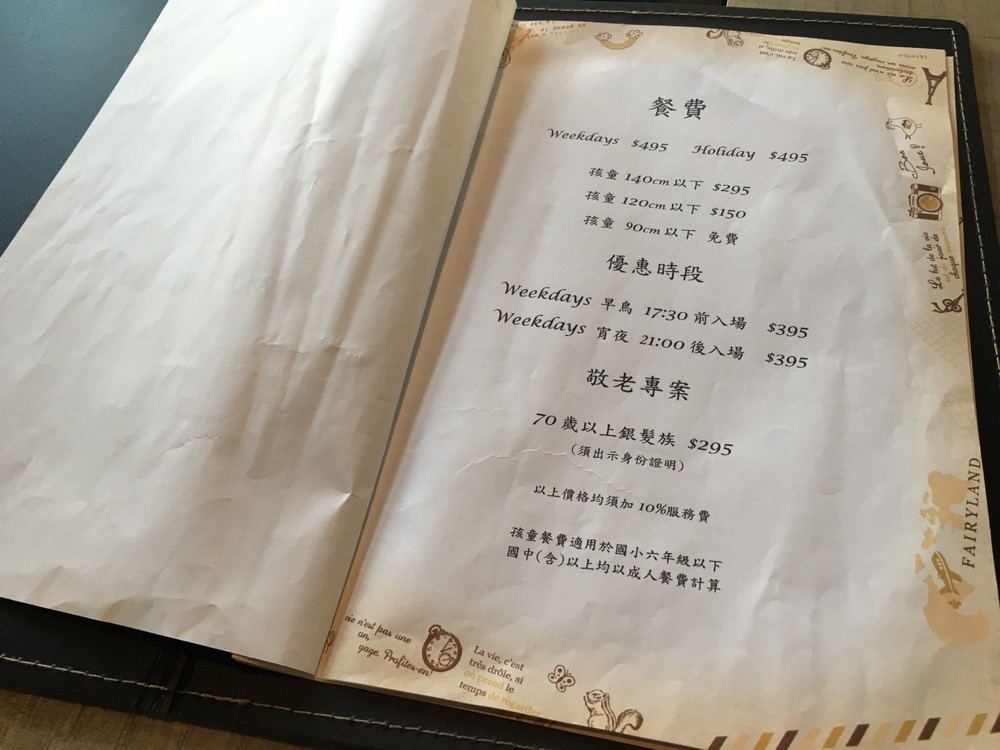 餐費
Weekdays $495 Holiday $495
孩童 140cm 以下 $295
孩童 120cm 以下 $150
孩童 90cm 以下 免費
優惠時段
Weekdays 早鳥 17:30 前入場 $395
Weekdays 宵夜 21:00 後入場 $395
敬老專案
70 歲以上銀髮族 $295
(須出示身份證明)
以上價格均須加 10%服務費
孩童餐費適用於國小六年級以下
國中(含)以上均以成人餐費計算
FAIRYLAND
vie n'est pas une
on,
yage. Profites-en!
La vie, c'est
très drôle, si
on prend le
temps de regarder